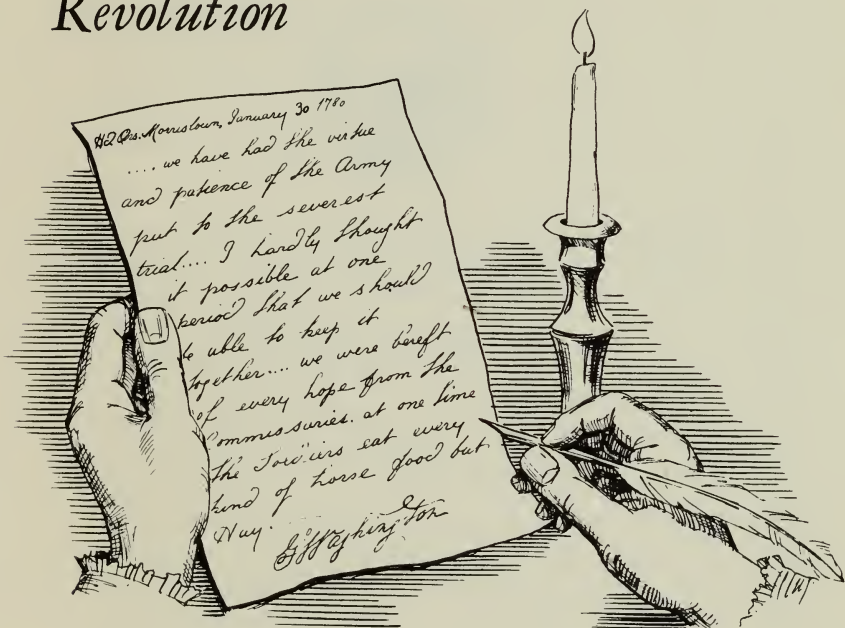 Revolution
Hd Qrs. Morristown, January 30 1780
.... we have had the virtue
and patience of the Army
put to the severest
trial.... I hardly thought
it possible at one
period that we should
be able to keep it
together.... we were bereft
of every hope from the
Commissaries. at one time
the Soldiers eat every
kind of horse food but
Hay.
G Washington